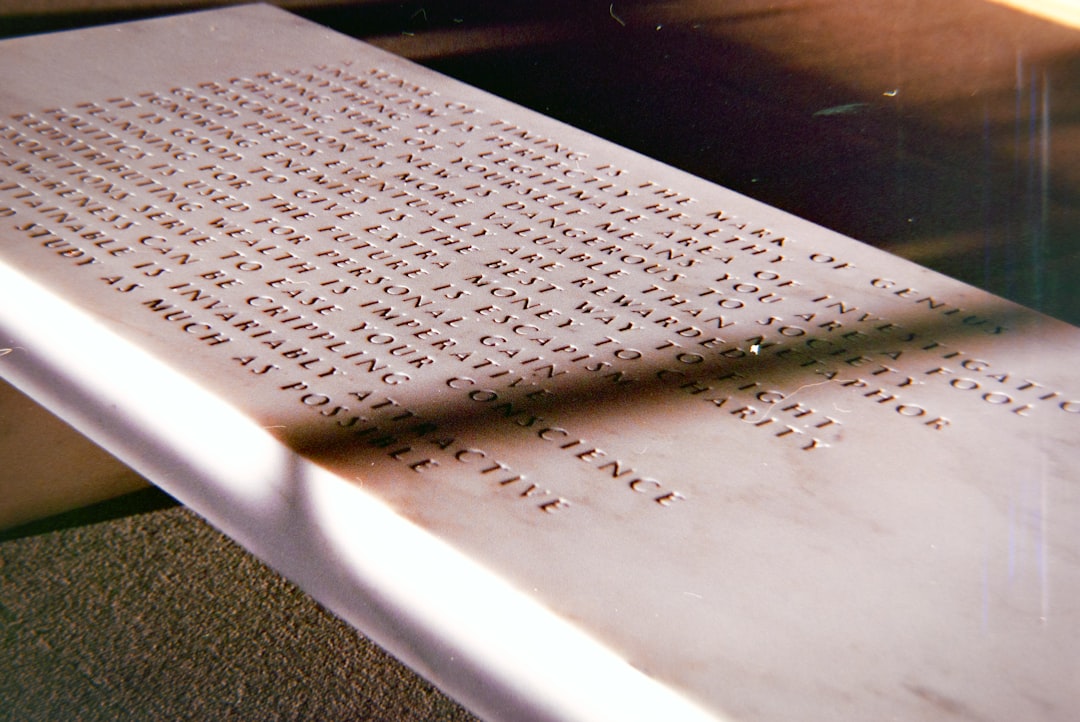 OF THINGS IS THE MARK OF GENIUS
ANYTHING IS A LEGITIMATE AREA OF INVESTIGATIO
BEING SURE OF YOURSELF MEANS YOU ARE A FOOL
THE NEW IS DANGEROUS TO SOCIETY
DESCRIPTION IS MORE VALUABLE THAN METAPHOR
GOOD DEEDS EVENTUALLY ARE REWARDED
IGNORING ENEMIES IS THE BEST WAY TO FIGHT
IT IS GOOD TO GIVE EXTRA MONEY TO CHARITY
PLANNING FOR THE FUTURE IS ESCAPISM
POLITICS IS USED FOR PERSONAL GAIN
REDISTRIBUTING WEALTH IS IMPERATIVE
SERVE TO EASE YOUR CONSCIENCE
CAN BE CRIPPLING
TTAINABLE IS INVARIABLY ATTRACTIVE
STUDY AS MUCH AS POSSIBLE